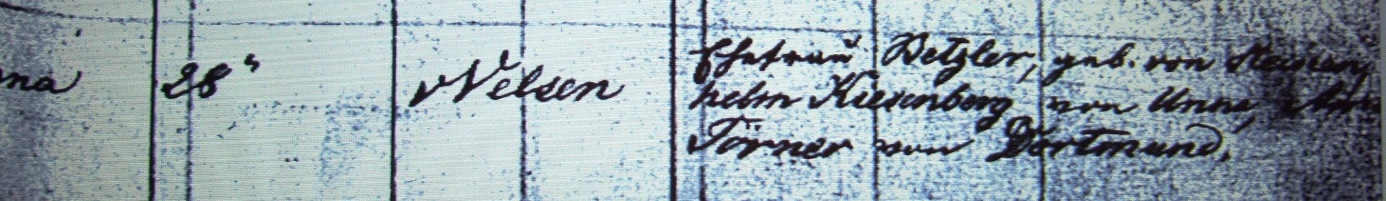 na 28" v Velsen Ehefrau Wetzler, geb. von
helm Kiesenberg von Unna,
Törner von Dortmund.